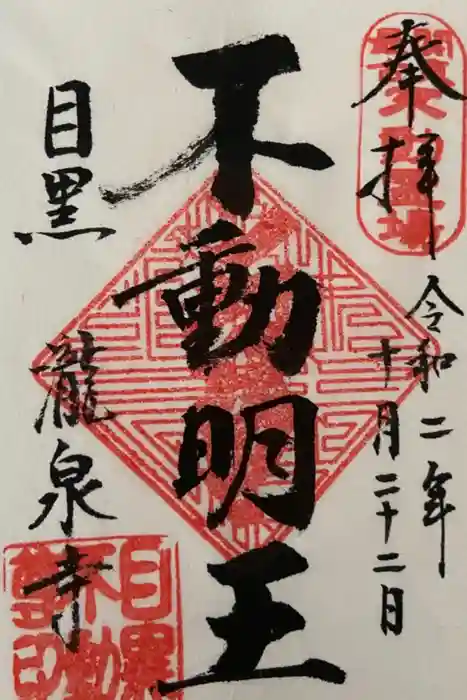 奉拝
令和二年
十月二十二日
不動明王
目黒
瀧泉寺